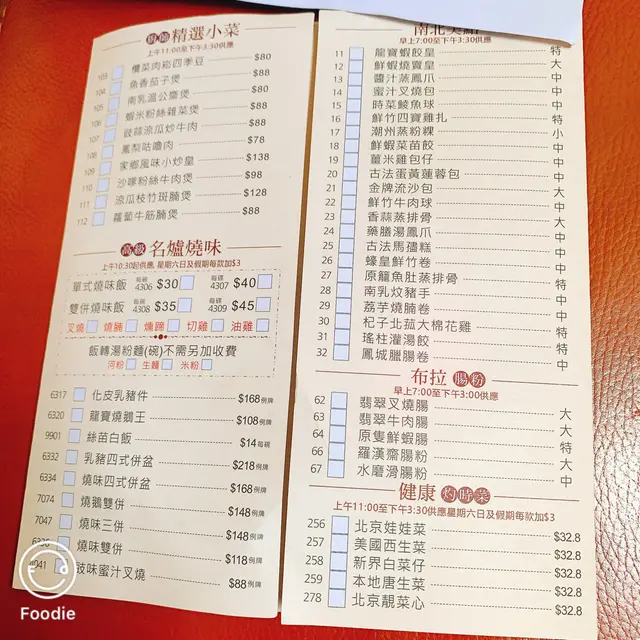 廚師 精選小菜
上午11:00至下午3:30供應
103 欖菜肉崧四季豆 $80
104 魚香茄子煲 $88
105 南乳溫公齋煲 $80
106 蝦米粉絲雜菜煲 $88
107 豉蒜涼瓜炒牛肉 $88
108 鳳梨咕嚕肉 $78
109 家鄉風味小炒皇 $138
110 沙嗲粉絲牛肉煲 $98
111 涼瓜枝竹斑腩煲 $128
112 蘿蔔牛筋腩煲 $88
高級 名爐燒味
上午10:30起供應, 星期六日及假期每款加$3
單式燒味飯 每碗 4306 $30 每碟 4307 $40
雙併燒味飯 每碗 4308 $35 每碟 4309 $45
叉燒 燒腩 燻蹄 切雞 油雞
飯轉湯粉麵(碗)不需另加收費
河粉 生麵 米粉
6317 化皮乳豬件 $168例牌
6320 龍寶燒鵝王 $108例牌
9901 絲苗白飯 $14每碗
6332 乳豬四式併盆 $218例牌
6334 燒味四式併盆 $168例牌
7074 燒鵝雙併 $148例牌
7047 燒味三併 $148例牌
燒味雙併 $118例牌
041 豉味蜜汁叉燒 $88例牌
南北美點
早上7:00至下午3:30供應
11 龍寶蝦餃皇 特
12 鮮蝦燒賣皇 大
13 醬汁蒸鳳爪 中
14 蜜汁叉燒包 中
15 時菜鯪魚球 中
16 鮮竹四寶雞扎 特
17 潮州蒸粉粿 小
18 鮮蝦菜苗餃 中
19 薑米雞包仔 中
20 古法蛋黃蓮蓉包 大
21 金牌流沙包 大
22 鮮竹牛肉球 中
23 香蒜蒸排骨 大
24 藥膳湯鳳爪 中
25 古法馬孻糕 中
26 蠔皇鮮竹卷 中
27 原籠魚肚蒸排骨 特
28 南乳炆豬手 中
29 荔芋燒腩卷 中
30 杞子北菰大棉花雞 特
31 瑤柱灌湯餃 特
32 鳳城臘腸卷 中
布拉 腸粉
早上7:00至下午3:00供應
62 翡翠叉燒腸 大
63 翡翠牛肉腸 大
64 原隻鮮蝦腸 特
66 羅漢齋腸粉 大
67 水磨滑腸粉 中
健康 灼時菜
上午11:00至下午3:30供應星期六日及假期每款加$3
256 北京娃娃菜 $32.8
257 美國西生菜 $32.8
258 新界白菜仔 $32.8
259 本地唐生菜 $32.8
278 北京靚菜心 $32.8
Foodie